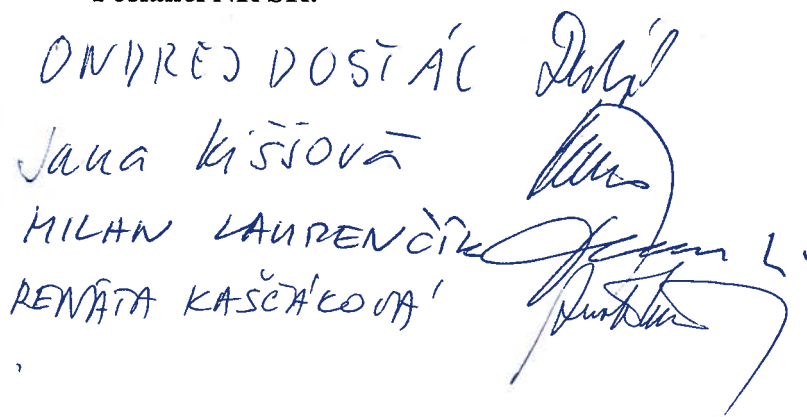 Poslanci NR SR:
ONDREJ DOSTÁL
Jana Kiššová
MILAN LAURENČÍK
RENÁTA KAŠČÁKOVÁ